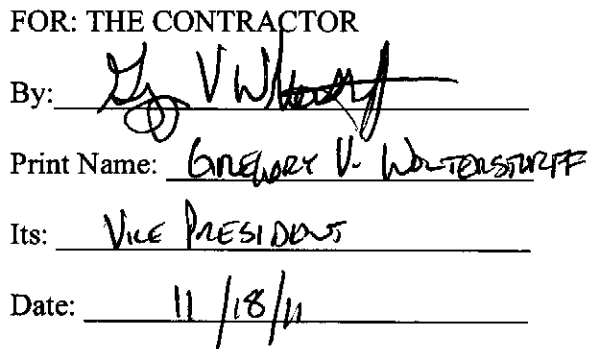 FOR: THE CONTRACTOR
By: Greg V Wolterstorff
Print Name: GREGORY V. WOLTERSTORFF
Its: VICE PRESIDENT
Date: 11/18/11